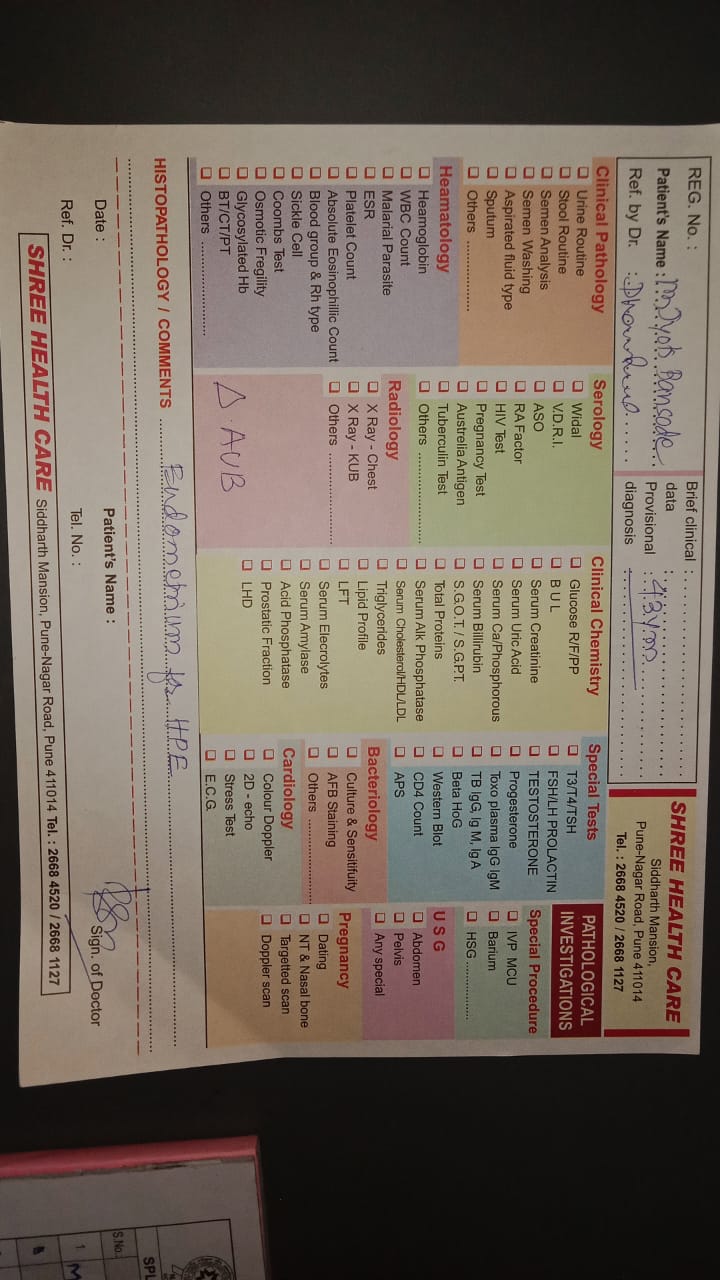 REG. No. :
Patient's Name :
Ref. by Dr. :
Brief clinical :
data
Provisional : 43yrs
diagnosis
SHREE HEALTH CARE
Siddharth Mansion,
Pune-Nagar Road, Pune 411014
Tel. : 2668 4520 / 2668 1127
PATHOLOGICAL
INVESTIGATIONS
Clinical Pathology
Urine Routine
Stool Routine
Semen Analysis
Semen Washing
Aspirated fluid type
Sputum
Others ..................
Heamatology
Heamoglobin
WBC Count
Malarial Parasite
ESR
Platelet Count
Absolute Eosinophillic Count
Blood group & Rh type
Sickle Cell
Coombs Test
Osmotic Fregility
Glycosylated Hb
BT/CT/PT
Others ........................
Serology
Widal
V.D.R.I.
ASO
RA Factor
HIV Test
Pregnancy Test
Australia Antigen
Tuberculin Test
Others ........................
Radiology
X Ray - Chest
X Ray - KUB
Others ........................
Δ. AUB
Clinical Chemistry
Glucose R/F/PP
B U L
Serum Creatinine
Serum Uric Acid
Serum Ca/Phosphorous
Serum Billirubin
S.G.O.T. / S.G.P.T.
Total Proteins
Serum Alk Phosphatase
Serum Cholesterol/HDL/LDL
Triglycerides
Lipid Profile
LFT
Serum Elecrolytes
Serum Amylase
Acid Phosphatase
Prostatic Fraction
LHD
Special Tests
T3/T4/TSH
FSH/LH PROLACTIN
TESTOSTERONE
Progesterone
Toxo plasma IgG IgM
TB IgG, Ig M, Ig A
Beta HoG
Western Blot
CD4 Count
APS
Bacteriology
Culture & Sensitifuity
AFB Staining
Others ........................
Cardiology
Colour Doppler
2D - echo
Stress Test
E.C.G.
Special Procedure
IVP MCU
Barium
HSG ..............
U S G
Abdomen
Pelvis
Any special
Pregnancy
Dating
NT & Nasal bone
Targetted scan
Doppler scan
HISTOPATHOLOGY / COMMENTS Endometrium for HPE
Date :
Patient's Name :
Sign. of Doctor
Ref. Dr. :
Tel. No. :
SHREE HEALTH CARE Siddharth Mansion, Pune-Nagar Road, Pune 411014 Tel. : 2668 4520 / 2668 1127
S.No.
SPL
1 M